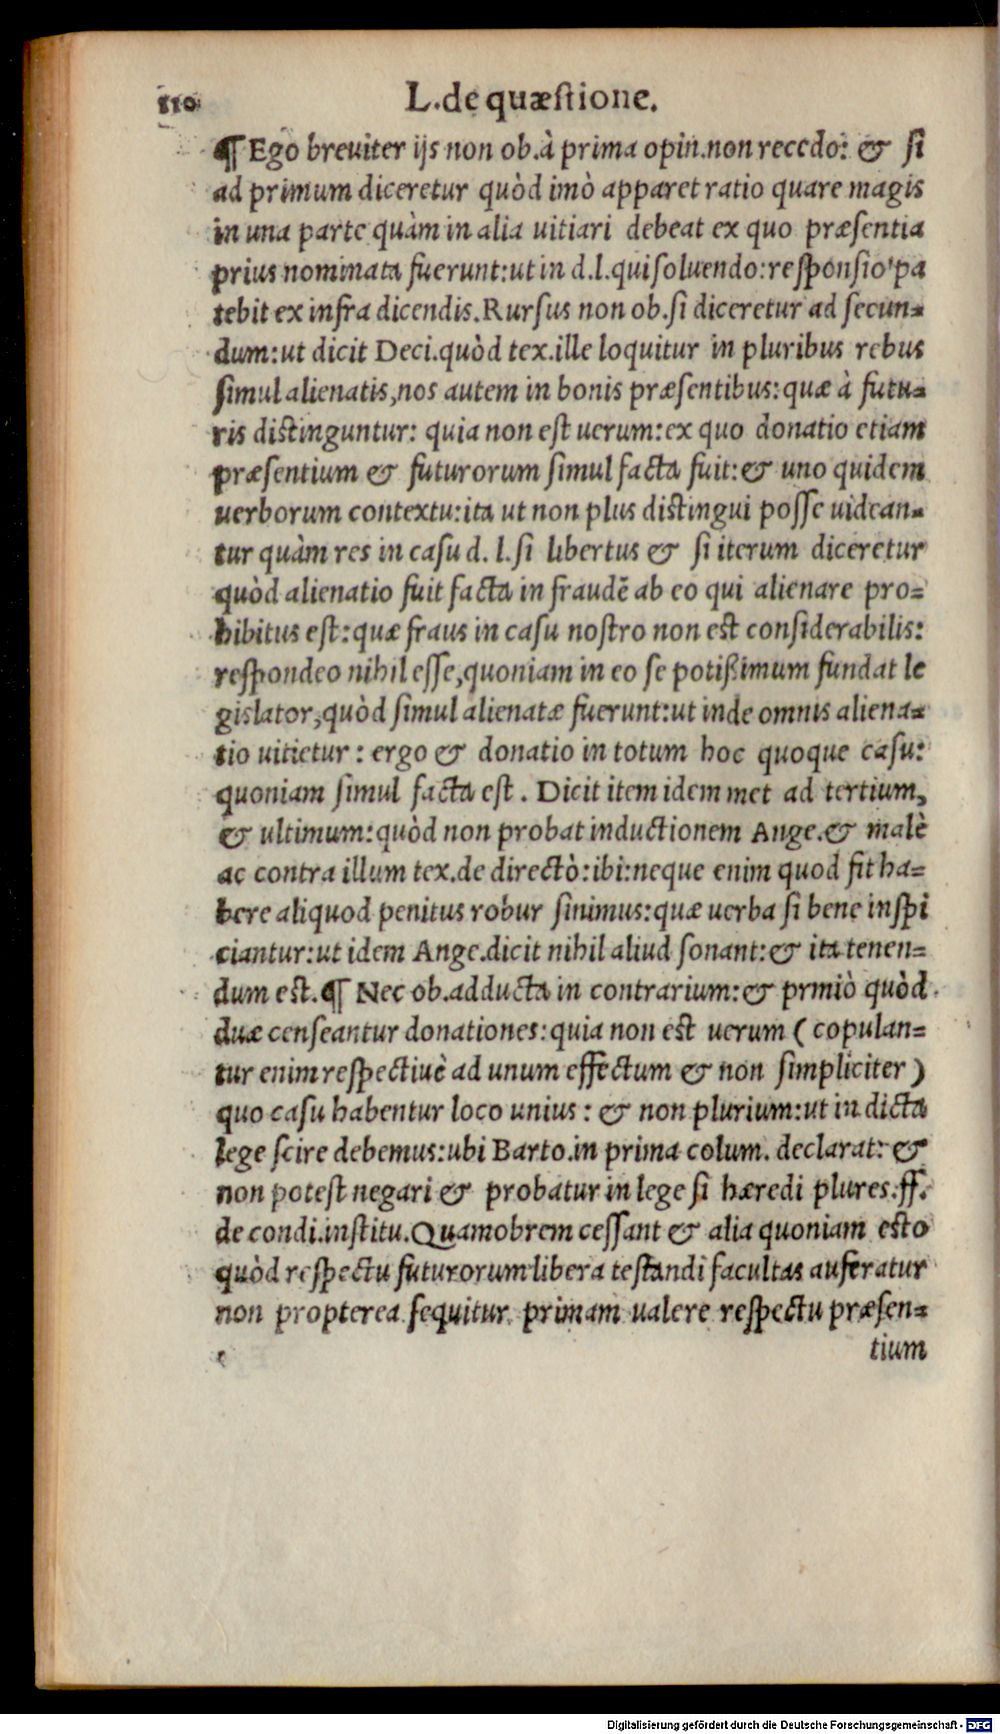 110
L. de quæstione.
¶ Ego breuiter ijs non ob. à prima opin. non recedo: & si
ad primum diceretur quòd imò apparet ratio quare magis
in una parte quàm in alia uitiari debeat ex quo præsentia
prius nominata fuerunt: ut in d. l. qui soluendo: responsio pa
tebit ex infra dicendis. Rursus non ob. si diceretur ad secun-
dum: ut dicit Deci. quòd tex. ille loquitur in pluribus rebus
simul alienatis, nos autem in bonis præsentibus: quæ à futu-
ris distinguntur: quia non est uerum: ex quo donatio etiam
præsentium & futurorum simul facta fuit: & uno quidem
uerborum contextu: ita ut non plus distingui posse uidean-
tur quàm res in casu d. l. si libertus & si iterum diceretur
quòd alienatio fuit facta in fraudẽ ab eo qui alienare pro-
hibitus est: quæ fraus in casu nostro non est considerabilis:
respondeo nihil esse, quoniam in eo se potißimum fundat le
gislator, quòd simul alienatæ fuerunt: ut inde omnis aliena-
tio uitietur: ergo & donatio in totum hoc quoque casu:
quoniam simul facta est. Dicit item idem met ad tertium,
& ultimum: quòd non probat inductionem Ange. & malè
ac contra illum tex. de directò: ibi: neque enim quod fit ha-
bere aliquod penitus robur sinimus: quæ uerba si bene inspi
ciantur: ut idem Ange. dicit nihil aliud sonant: & ita tenen-
dum est. ¶ Nec ob. adducta in contrarium: & prmiò quòd
duæ censeantur donationes: quia non est uerum (copulan-
tur enim respectiuè ad unum effectum & non simpliciter)
quo casu habentur loco unius: & non plurium: ut in dicta
lege scire debemus: ubi Barto. in prima colum. declarat: &
non potest negari & probatur in lege si hæredi plures. ff.
de condi. institu. Quamobrem cessant & alia quoniam esto
quòd respectu futurorum libera testandi facultas auferatur
non propterea sequitur primam ualere respectu præsen-
tium
Digitalisierung gefördert durch die Deutsche Forschungsgemeinschaft - DFG